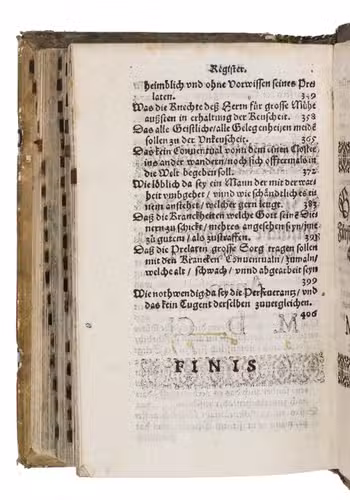 Register.
heimblich vnd ohne Vorwissen seines Pre
laten. 349
Was die Knechte deß Herrn für grosse Mühe
außsten in erhaltung der Keuscheit. 358
Das alle Geistliche / alle Gelegenheiten meidē
sollen zu der Vnkeuscheit. 365
Das kein Conuentual von dem einen Closter
ins ander wandern / noch sich offtermals in
die Welt begeben soll. 372
Wie löblich da sey ein Mann der mit der war
heit vmbgehet / vnnd wie schändliches ei
nem anstehet / welcher gern leugt. 383
Daß die Kranckheiten welche Gott seine Die
nern zuschickt / mehres angesehen seyn / jne
zu gutem / als zustraffen. 391
Daß die Prelaten grosse Sorg tragen sollen
mit den Krancken Conuentualn / zumaln /
welche alt / schwach / vnnd abgearbeit seyn
399
Wie nothwendig da sey die Perseuerantz / vnd
das kein Tugent derselben zuuergleichen.
406
FINIS